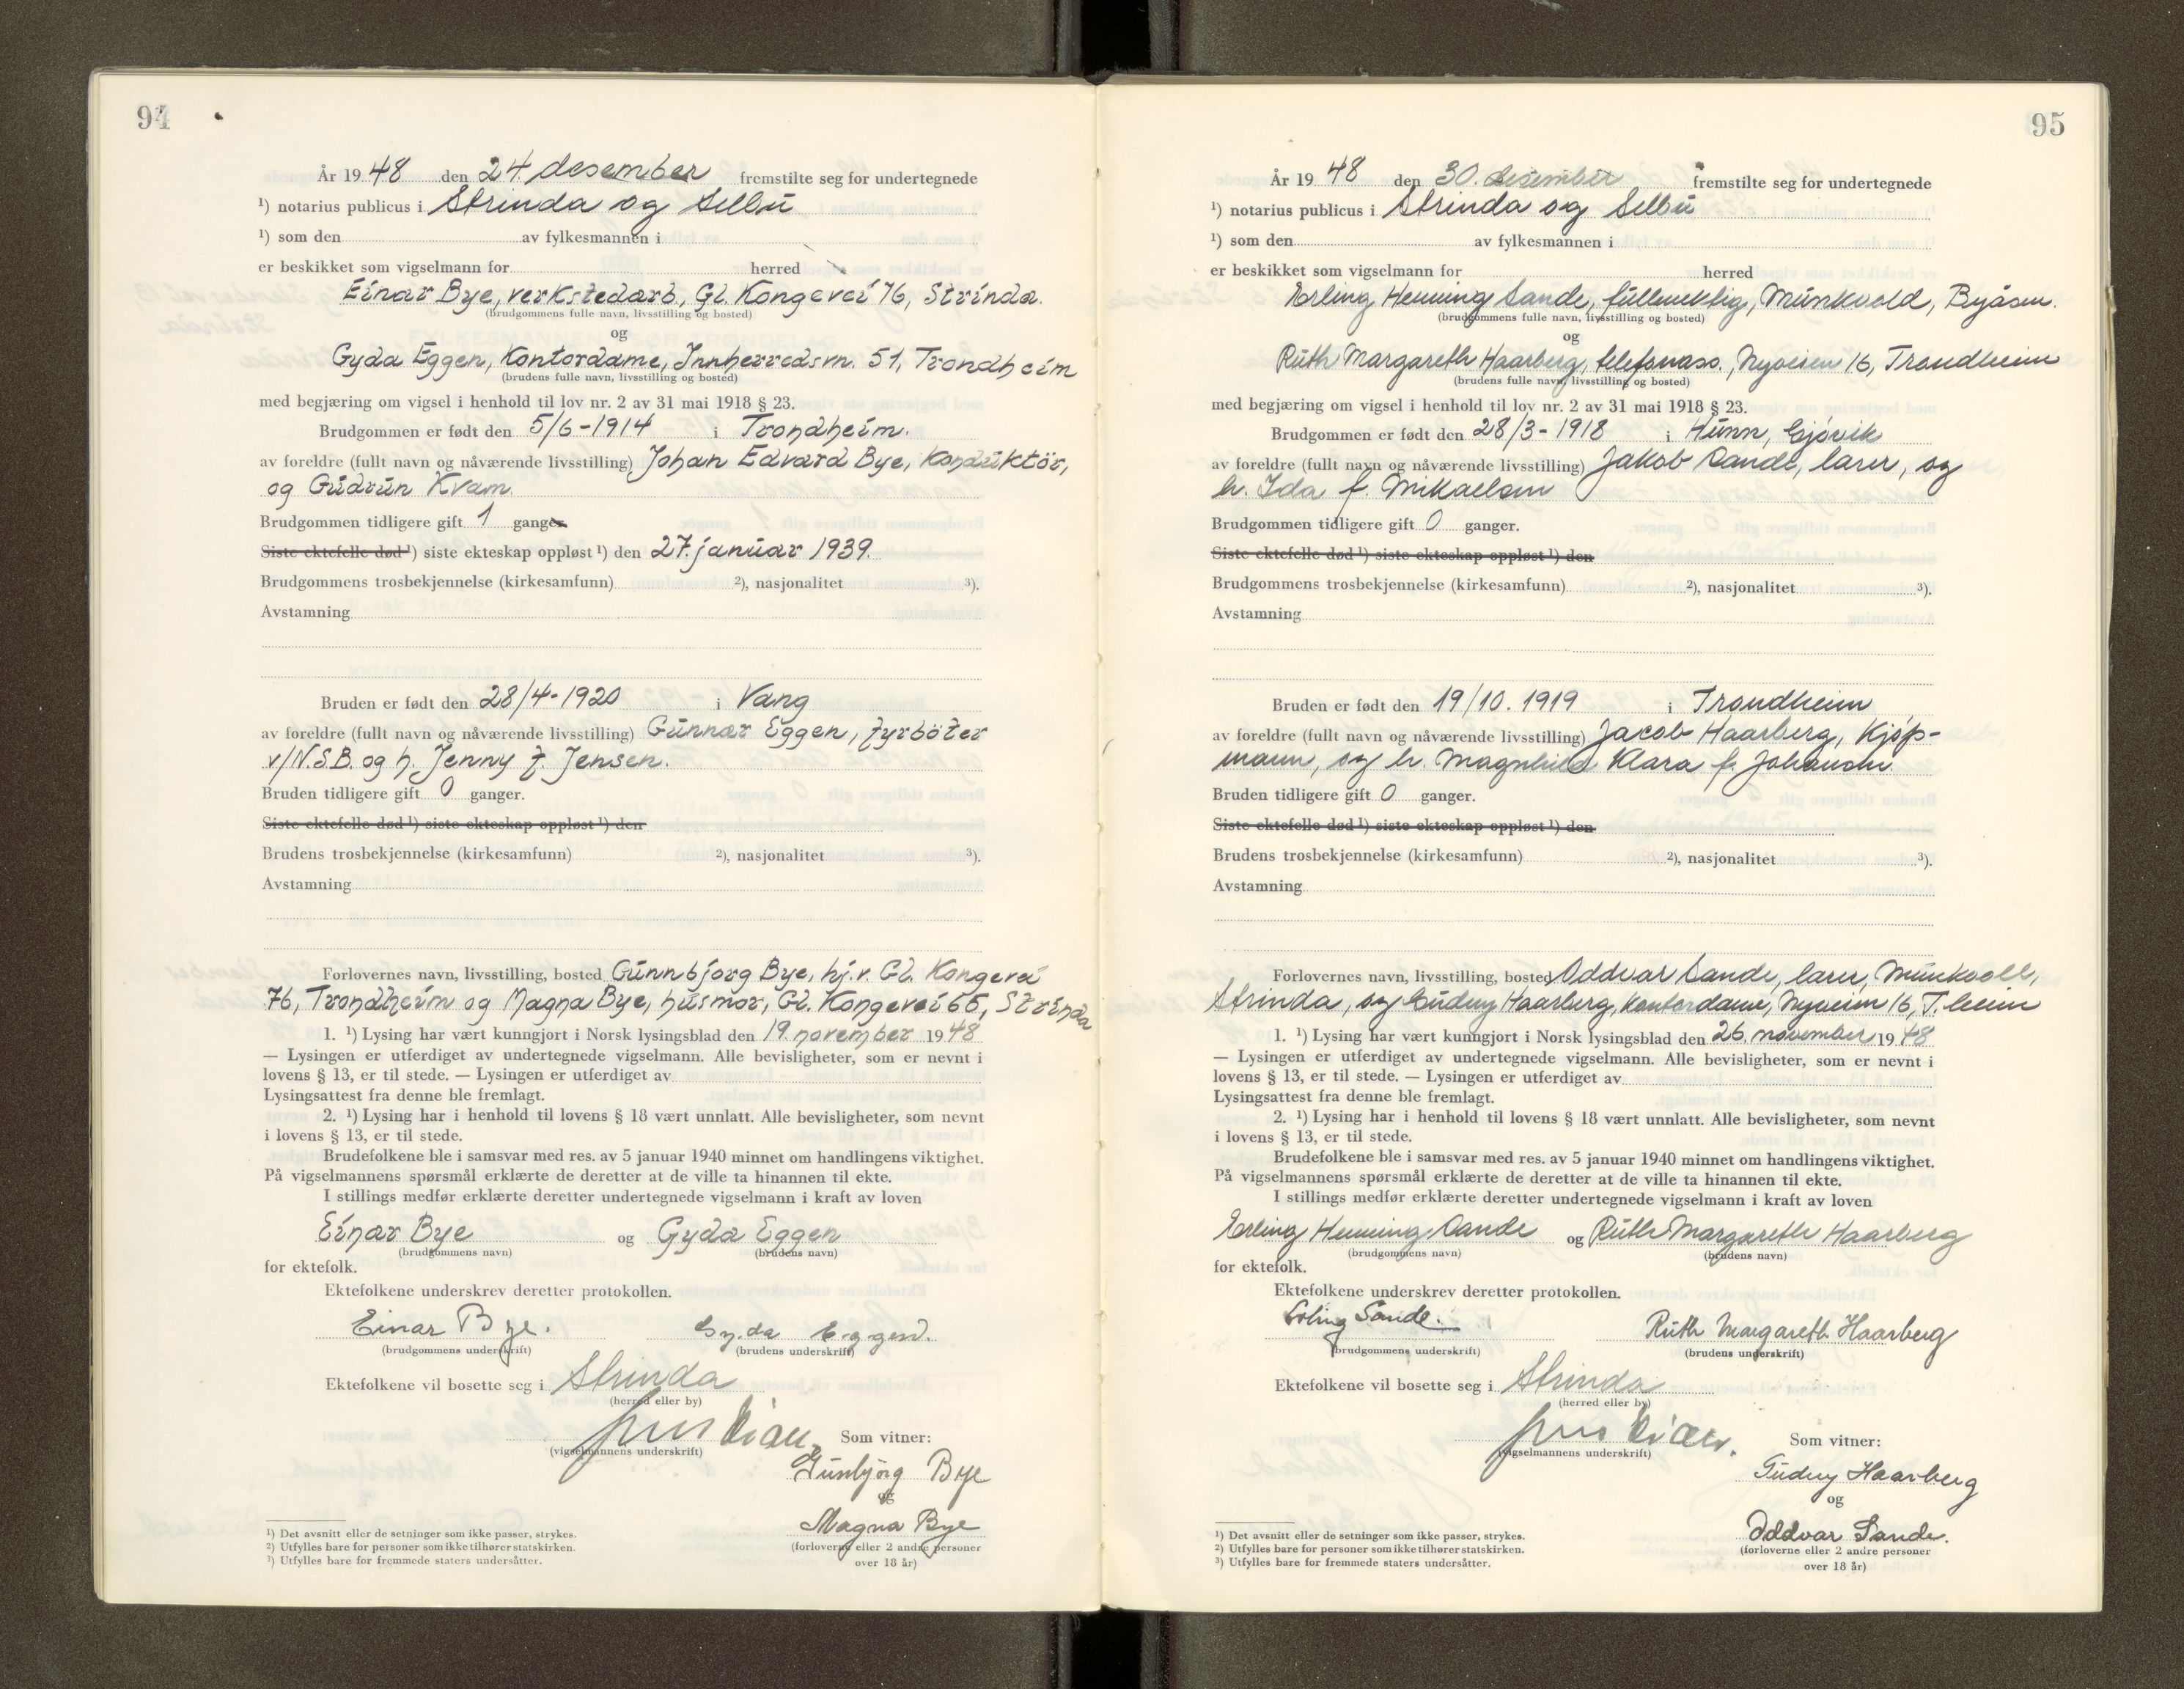 94
År 19 48 den 24. desember fremstilte seg for undertegnede
¹) notarius publicus i Strinda og Selbu
¹) som den av fylkesmannen i
er beskikket som vigselmann for herred
Einar Bye, verkstedarb., Gl. Kongevei 76, Strinda.
(brudgommens fulle navn, livsstilling og bosted)
og
Gyda Eggen, Kontordame, Innherredsvn. 51, Trondheim
(brudens fulle navn, livsstilling og bosted)
med begjæring om vigsel i henhold til lov nr. 2 av 31 mai 1918 § 23.
Brudgommen er født den 5/6-1914 i Trondheim.
av foreldre (fullt navn og nåværende livsstilling) Johan Edvard Bye, Konduktör,
og Gudrun Kvam.
Brudgommen tidligere gift 1 ganger.
Siste ektefelle død ¹) siste ekteskap oppløst ¹) den 27. januar 1939.
Brudgommens trosbekjennelse (kirkesamfunn) ²), nasjonalitet ³).
Avstamning
Bruden er født den 28/4-1920 i Vang
av foreldre (fullt navn og nåværende livsstilling) Gunnar Eggen, fyrböter
v/N.S.B. og h. Jenny f. Jensen.
Bruden tidligere gift 0 ganger.
Siste ektefelle død ¹) siste ekteskap oppløst ¹) den
Brudens trosbekjennelse (kirkesamfunn) ²), nasjonalitet ³).
Avstamning
Forlovernes navn, livsstilling, bosted Gunnbjorg Bye, hj.v. Gl. Kongevei
76, Trondheim og Magna Bye, husmor, Gl. Kongevei 66, Strinda
1. ¹) Lysing har vært kunngjort i Norsk lysingsblad den 19. november 1948
— Lysingen er utferdiget av undertegnede vigselmann. Alle bevisligheter, som er nevnt i
lovens § 13, er til stede. — Lysingen er utferdiget av
Lysingsattest fra denne ble fremlagt.
2. ¹) Lysing har i henhold til lovens § 18 vært unnlatt. Alle bevisligheter, som nevnt
i lovens § 13, er til stede.
Brudefolkene ble i samsvar med res. av 5 januar 1940 minnet om handlingens viktighet.
På vigselmannens spørsmål erklærte de deretter at de ville ta hinannen til ekte.
I stillings medfør erklærte deretter undertegnede vigselmann i kraft av loven
Einar Bye og Gyda Eggen
(brudgommens navn) (brudens navn)
for ektefolk.
Ektefolkene underskrev deretter protokollen.
Einar Bye. Gyda Eggen.
(brudgommens underskrift) (brudens underskrift)
Ektefolkene vil bosette seg i Strinda
(herred eller by)
(vigselmannens underskrift) Som vitner:
Gunbjørg Bye
og
Magna Bye
(forloverne eller 2 andre personer
over 18 år)
¹) Det avsnitt eller de setninger som ikke passer, strykes.
²) Utfylles bare for personer som ikke tilhører statskirken.
³) Utfylles bare for fremmede staters undersåtter.
95
År 19 48 den 30. desember fremstilte seg for undertegnede
¹) notarius publicus i Strinda og Selbu
¹) som den av fylkesmannen i
er beskikket som vigselmann for herred
Erling Henning Sande, fullmektig, Munkvold, Byåsen.
(brudgommens fulle navn, livsstilling og bosted)
og
Ruth Margareth Haarberg, telefonass., Nyveien 16, Trondheim
(brudens fulle navn, livsstilling og bosted)
med begjæring om vigsel i henhold til lov nr. 2 av 31 mai 1918 § 23.
Brudgommen er født den 28/3-1918 i Hunn, Gjøvik
av foreldre (fullt navn og nåværende livsstilling) Jakob Sande, lærer, og
h. Ida f. Mikaelsen
Brudgommen tidligere gift 0 ganger.
Siste ektefelle død ¹) siste ekteskap oppløst ¹) den
Brudgommens trosbekjennelse (kirkesamfunn) ²), nasjonalitet ³).
Avstamning
Bruden er født den 19/10. 1919 i Trondheim
av foreldre (fullt navn og nåværende livsstilling) Jacob Haarberg, Kjøp-
mann, og h. Klara f.
Bruden tidligere gift 0 ganger.
Siste ektefelle død ¹) siste ekteskap oppløst ¹) den
Brudens trosbekjennelse (kirkesamfunn) ²), nasjonalitet ³).
Avstamning
Forlovernes navn, livsstilling, bosted Oddvar Sande, lærer, Munkvoll,
Strinda, og Gudny Haarberg, kontordame, Nyveien 16, T.heim
1. ¹) Lysing har vært kunngjort i Norsk lysingsblad den 26. november 1948
— Lysingen er utferdiget av undertegnede vigselmann. Alle bevisligheter, som er nevnt i
lovens § 13, er til stede. — Lysingen er utferdiget av
Lysingsattest fra denne ble fremlagt.
2. ¹) Lysing har i henhold til lovens § 18 vært unnlatt. Alle bevisligheter, som nevnt
i lovens § 13, er til stede.
Brudefolkene ble i samsvar med res. av 5 januar 1940 minnet om handlingens viktighet.
På vigselmannens spørsmål erklærte de deretter at de ville ta hinannen til ekte.
I stillings medfør erklærte deretter undertegnede vigselmann i kraft av loven
Erling Henning Sande og Ruth Margareth Haarberg
(brudgommens navn) (brudens navn)
for ektefolk.
Ektefolkene underskrev deretter protokollen.
Erling Sande. Ruth Margareth Haarberg
(brudgommens underskrift) (brudens underskrift)
Ektefolkene vil bosette seg i Strinda
(herred eller by)
(vigselmannens underskrift) Som vitner:
Gudny Haarberg
og
Oddvar Sande.
(forloverne eller 2 andre personer
over 18 år)
¹) Det avsnitt eller de setninger som ikke passer, strykes.
²) Utfylles bare for personer som ikke tilhører statskirken.
³) Utfylles bare for fremmede staters undersåtter.